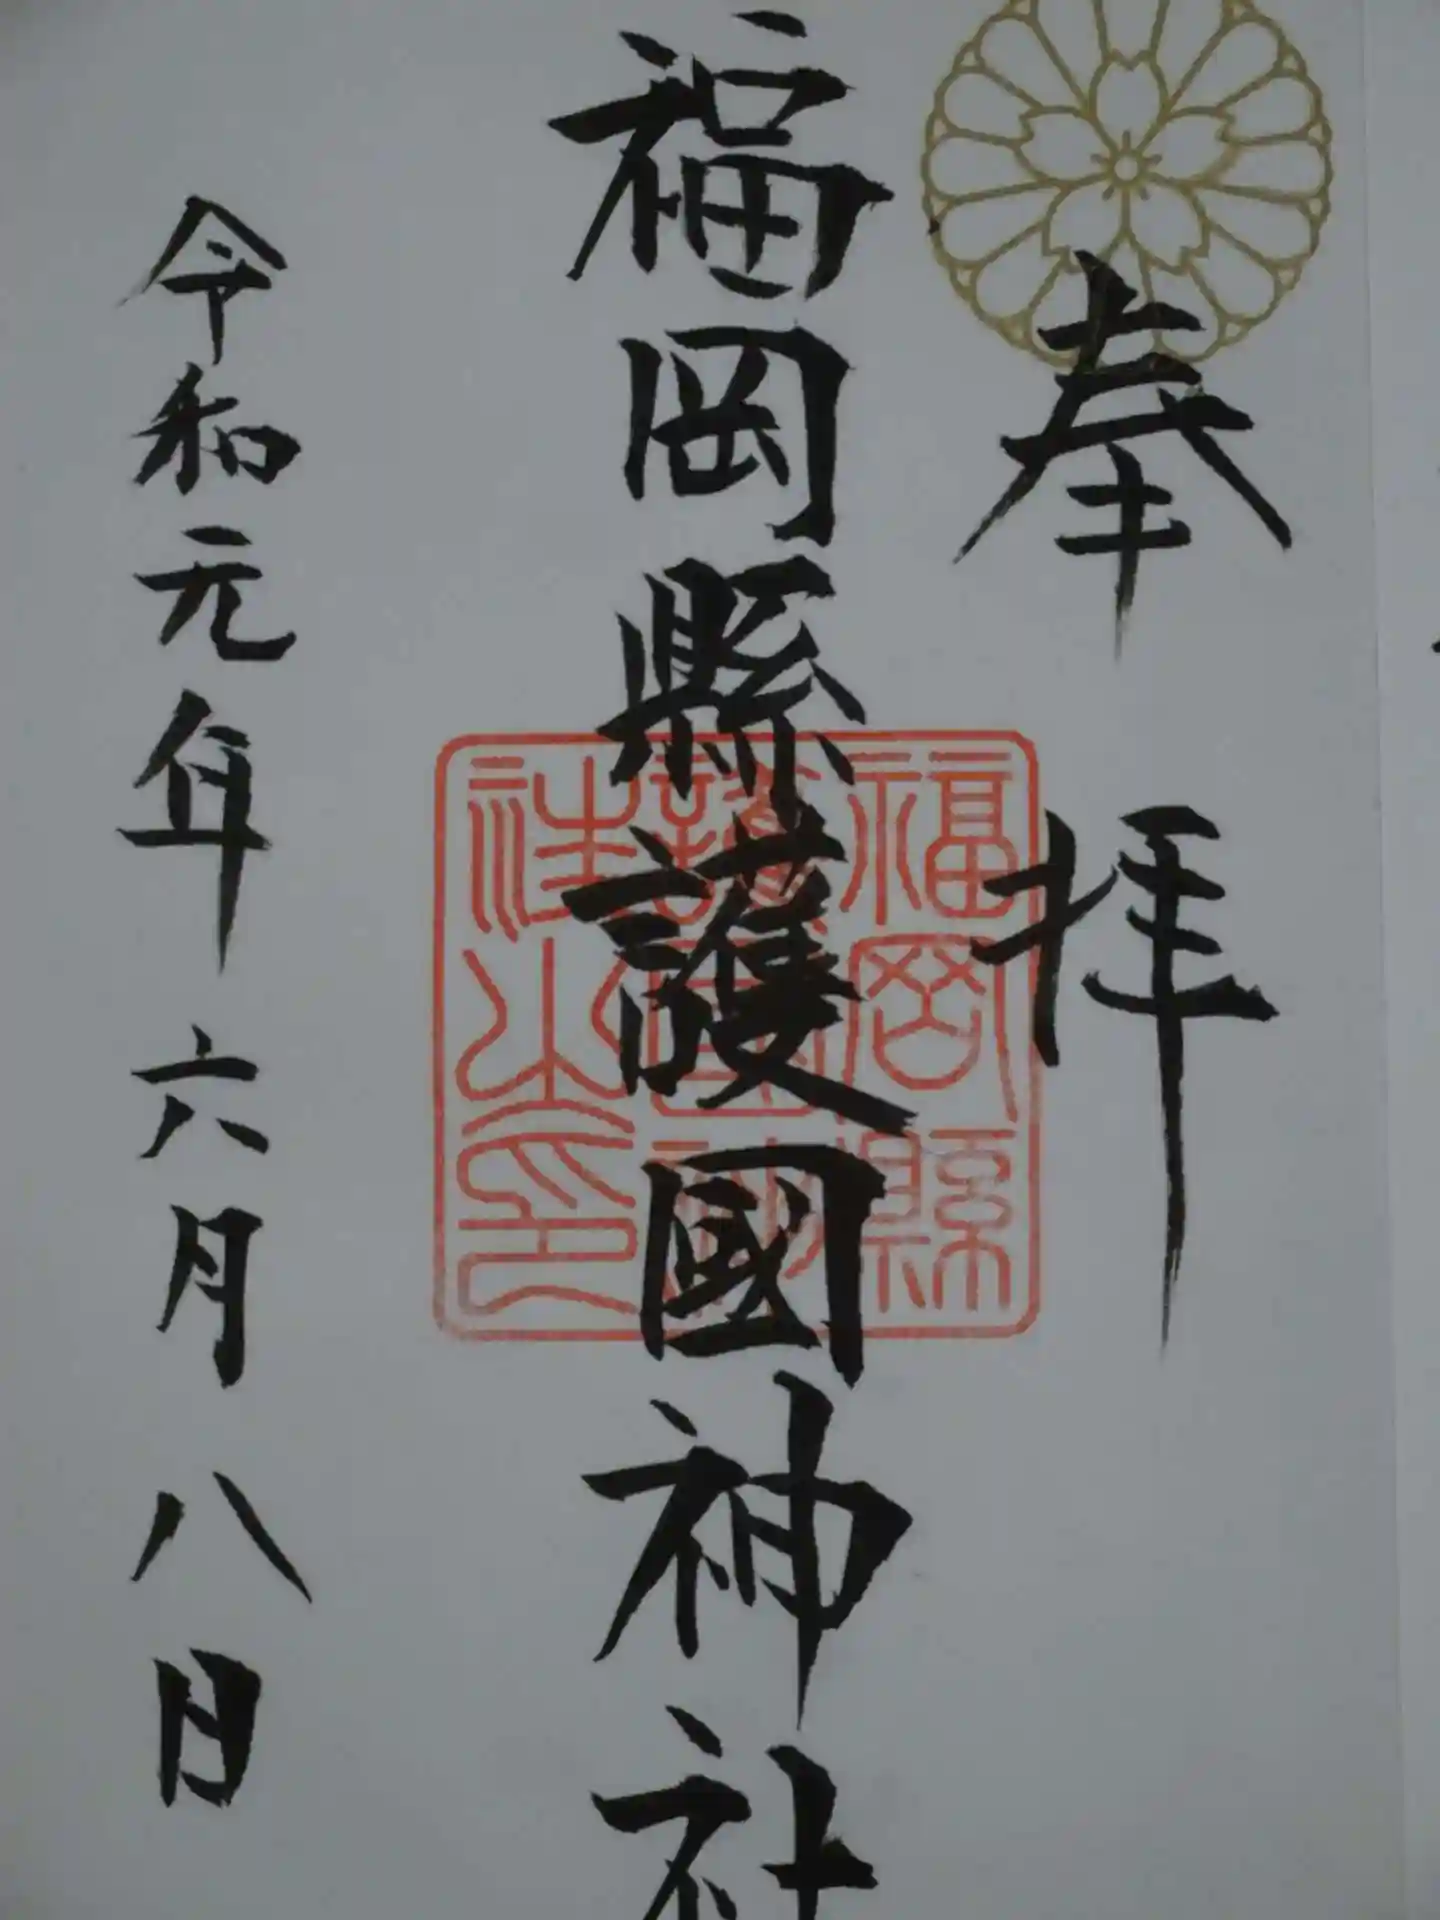 奉拝
福岡縣護國神社
福岡縣
護國神
社之印
令和元年六月八日